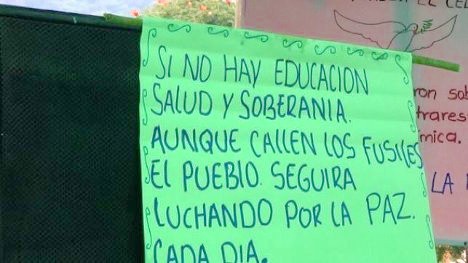 SI NO HAY EDUCACION
SALUD Y SOBERANIA.
AUNQUE CALLEN LOS FUSILES
EL PUEBLO. SEGUIRA
LUCHANDO POR LA PAZ.
CADA DIA.
LA